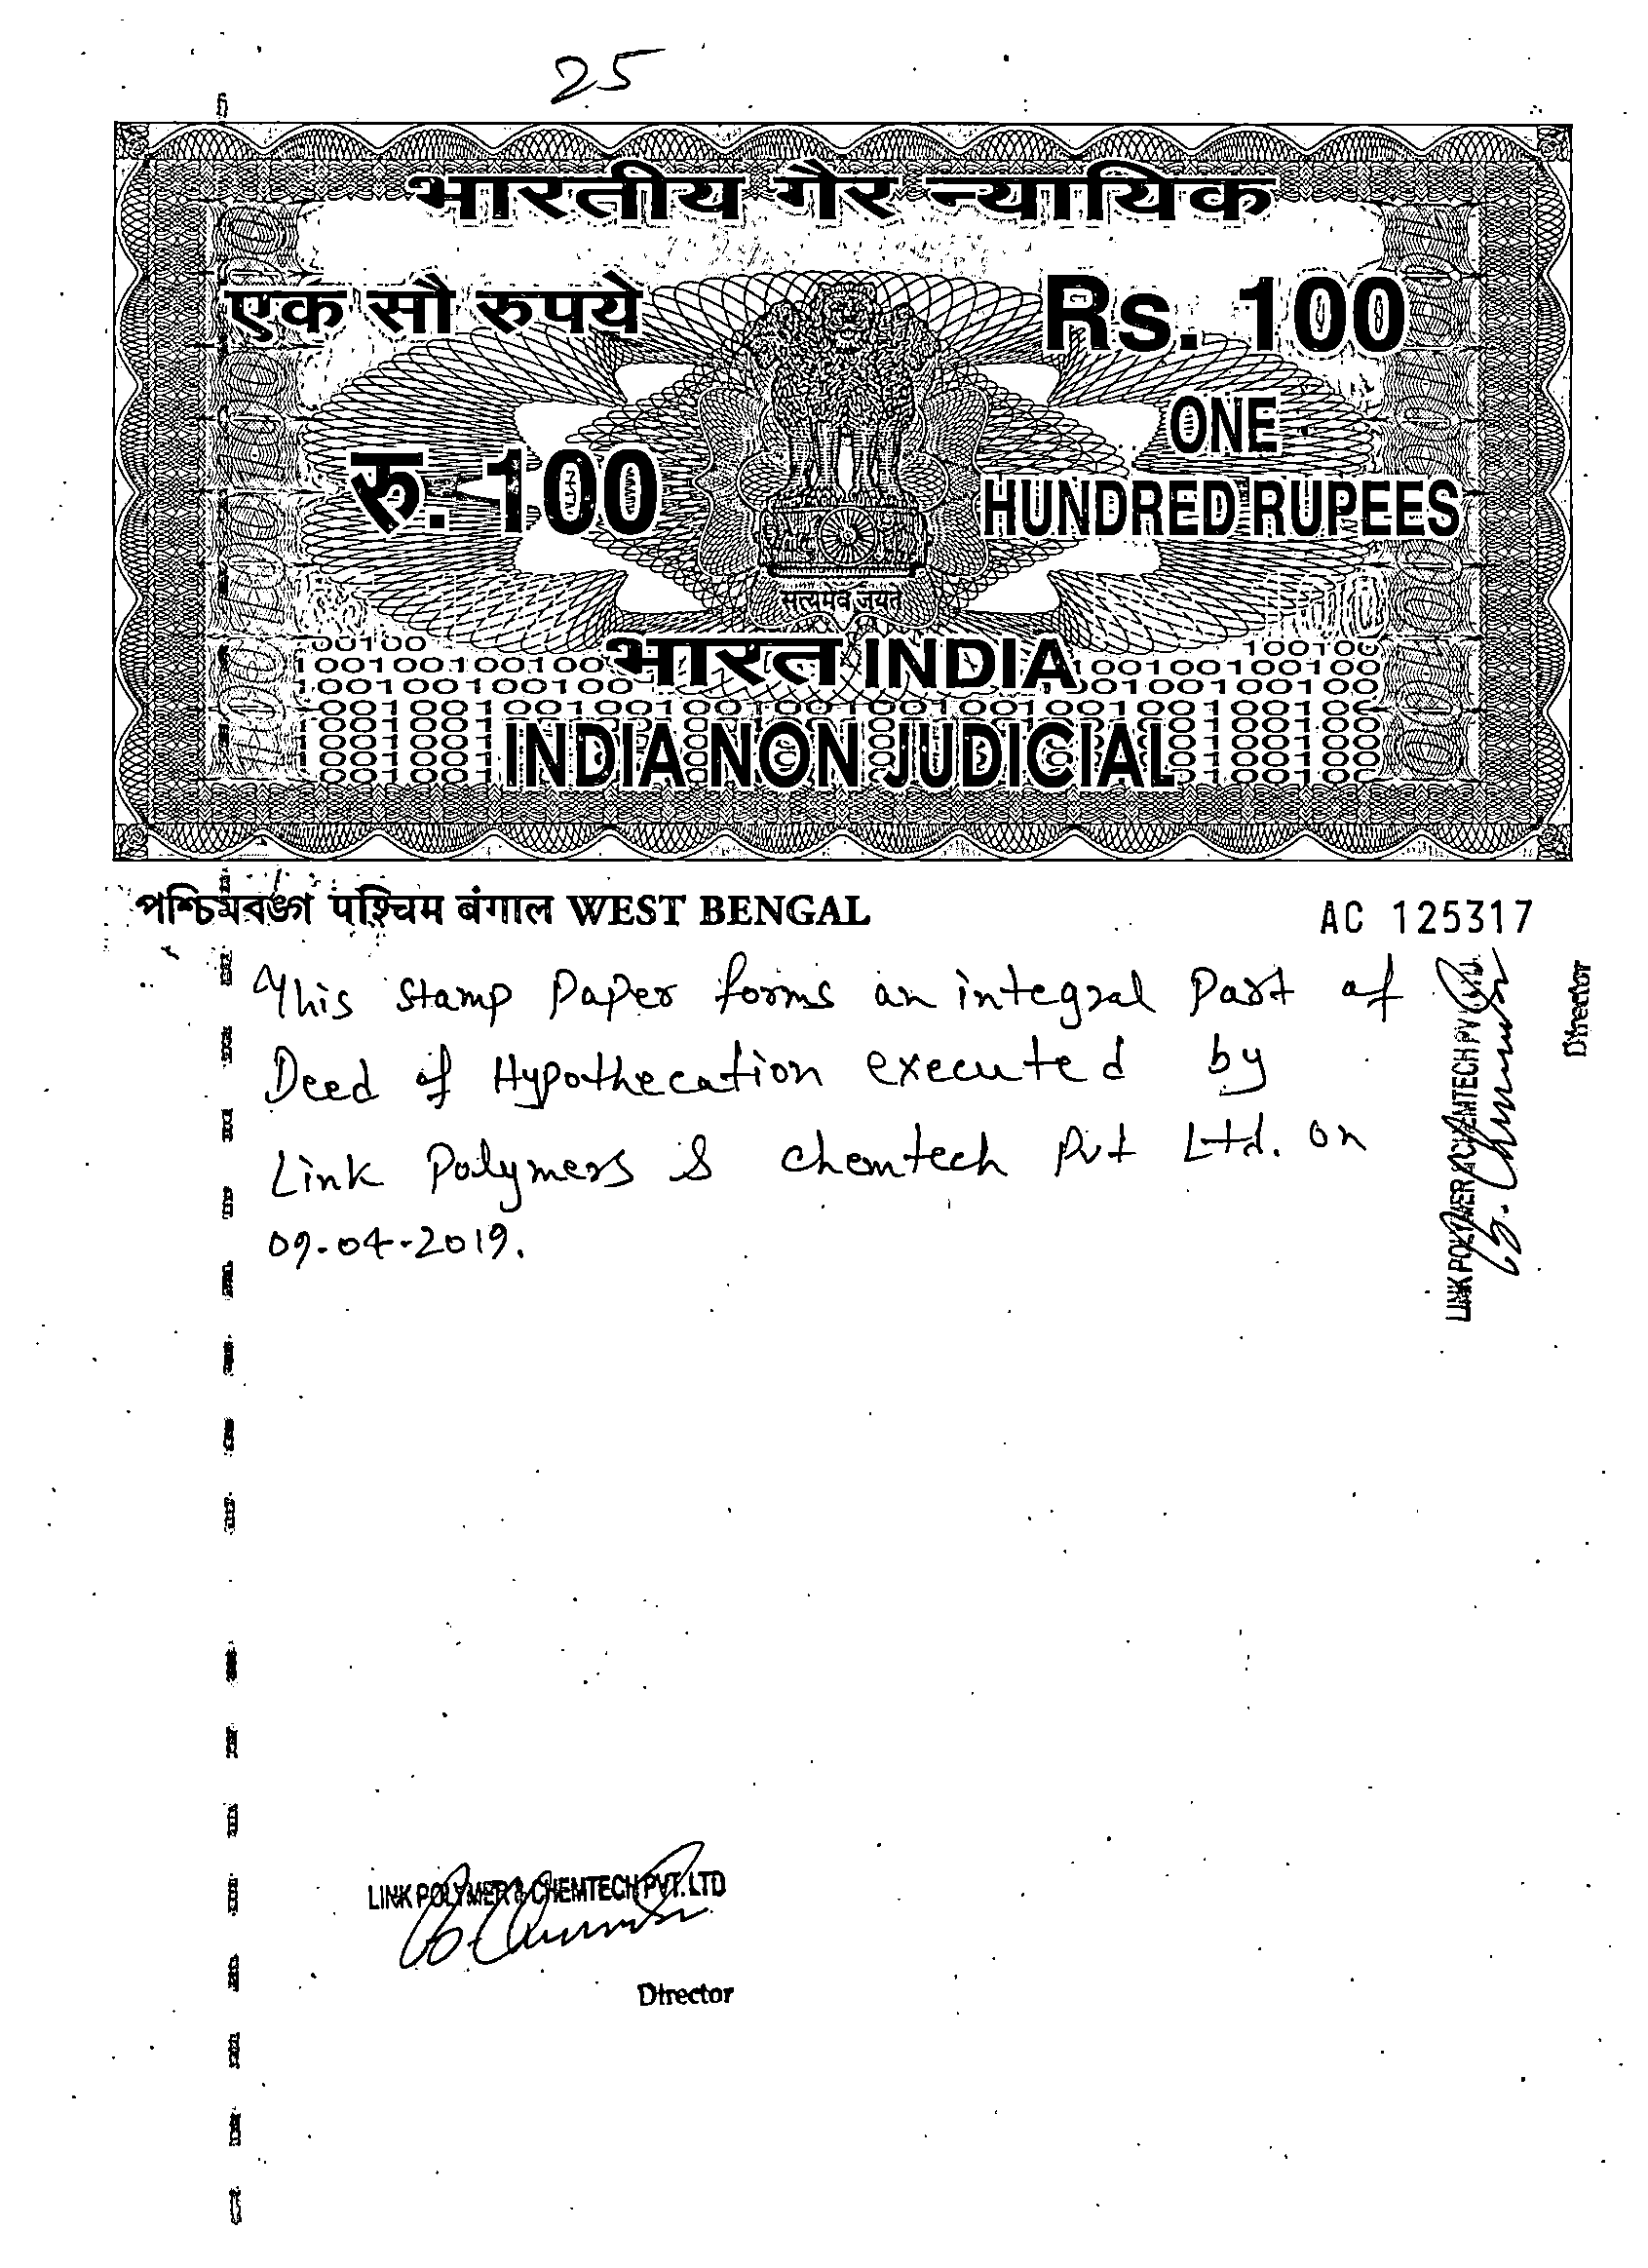 25
भारतीय गैर न्यायिक
एक सौ रुपये
Rs. 100
रु. 100
ONE
HUNDRED RUPEES
सत्यमेव जयते
भारत INDIA
INDIA NON JUDICIAL
পশ্চিমবঙ্গ पश्चिम बंगाल WEST BENGAL
AC 125317
This Stamp Paper forms an integral Part of
Deed of Hypothecation executed by
Link Polymers & Chemtech Pvt Ltd. on
09-04-2019.
LINK POLYMER & CHEMTECH PVT. LTD.
Director
LINK POLYMER & CHEMTECH PVT. LTD
Director